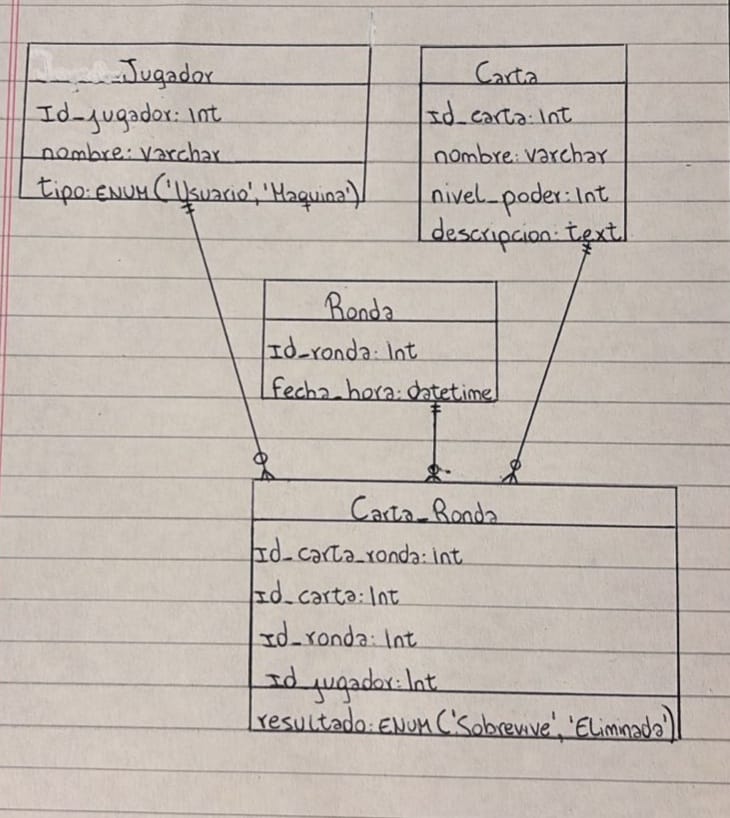 Jugador
Id_jugador: Int
nombre: varchar
tipo: ENUM('Usuario', 'Maquina')
Carta
Id_carta: Int
nombre: varchar
nivel_poder: Int
descripcion: text
Ronda
Id_ronda: Int
fecha_hora: datetime
Carta_Ronda
Id_carta_ronda: Int
Id_carta: Int
Id_ronda: Int
Id_jugador: Int
resultado: ENUM('Sobrevive', 'Eliminada')